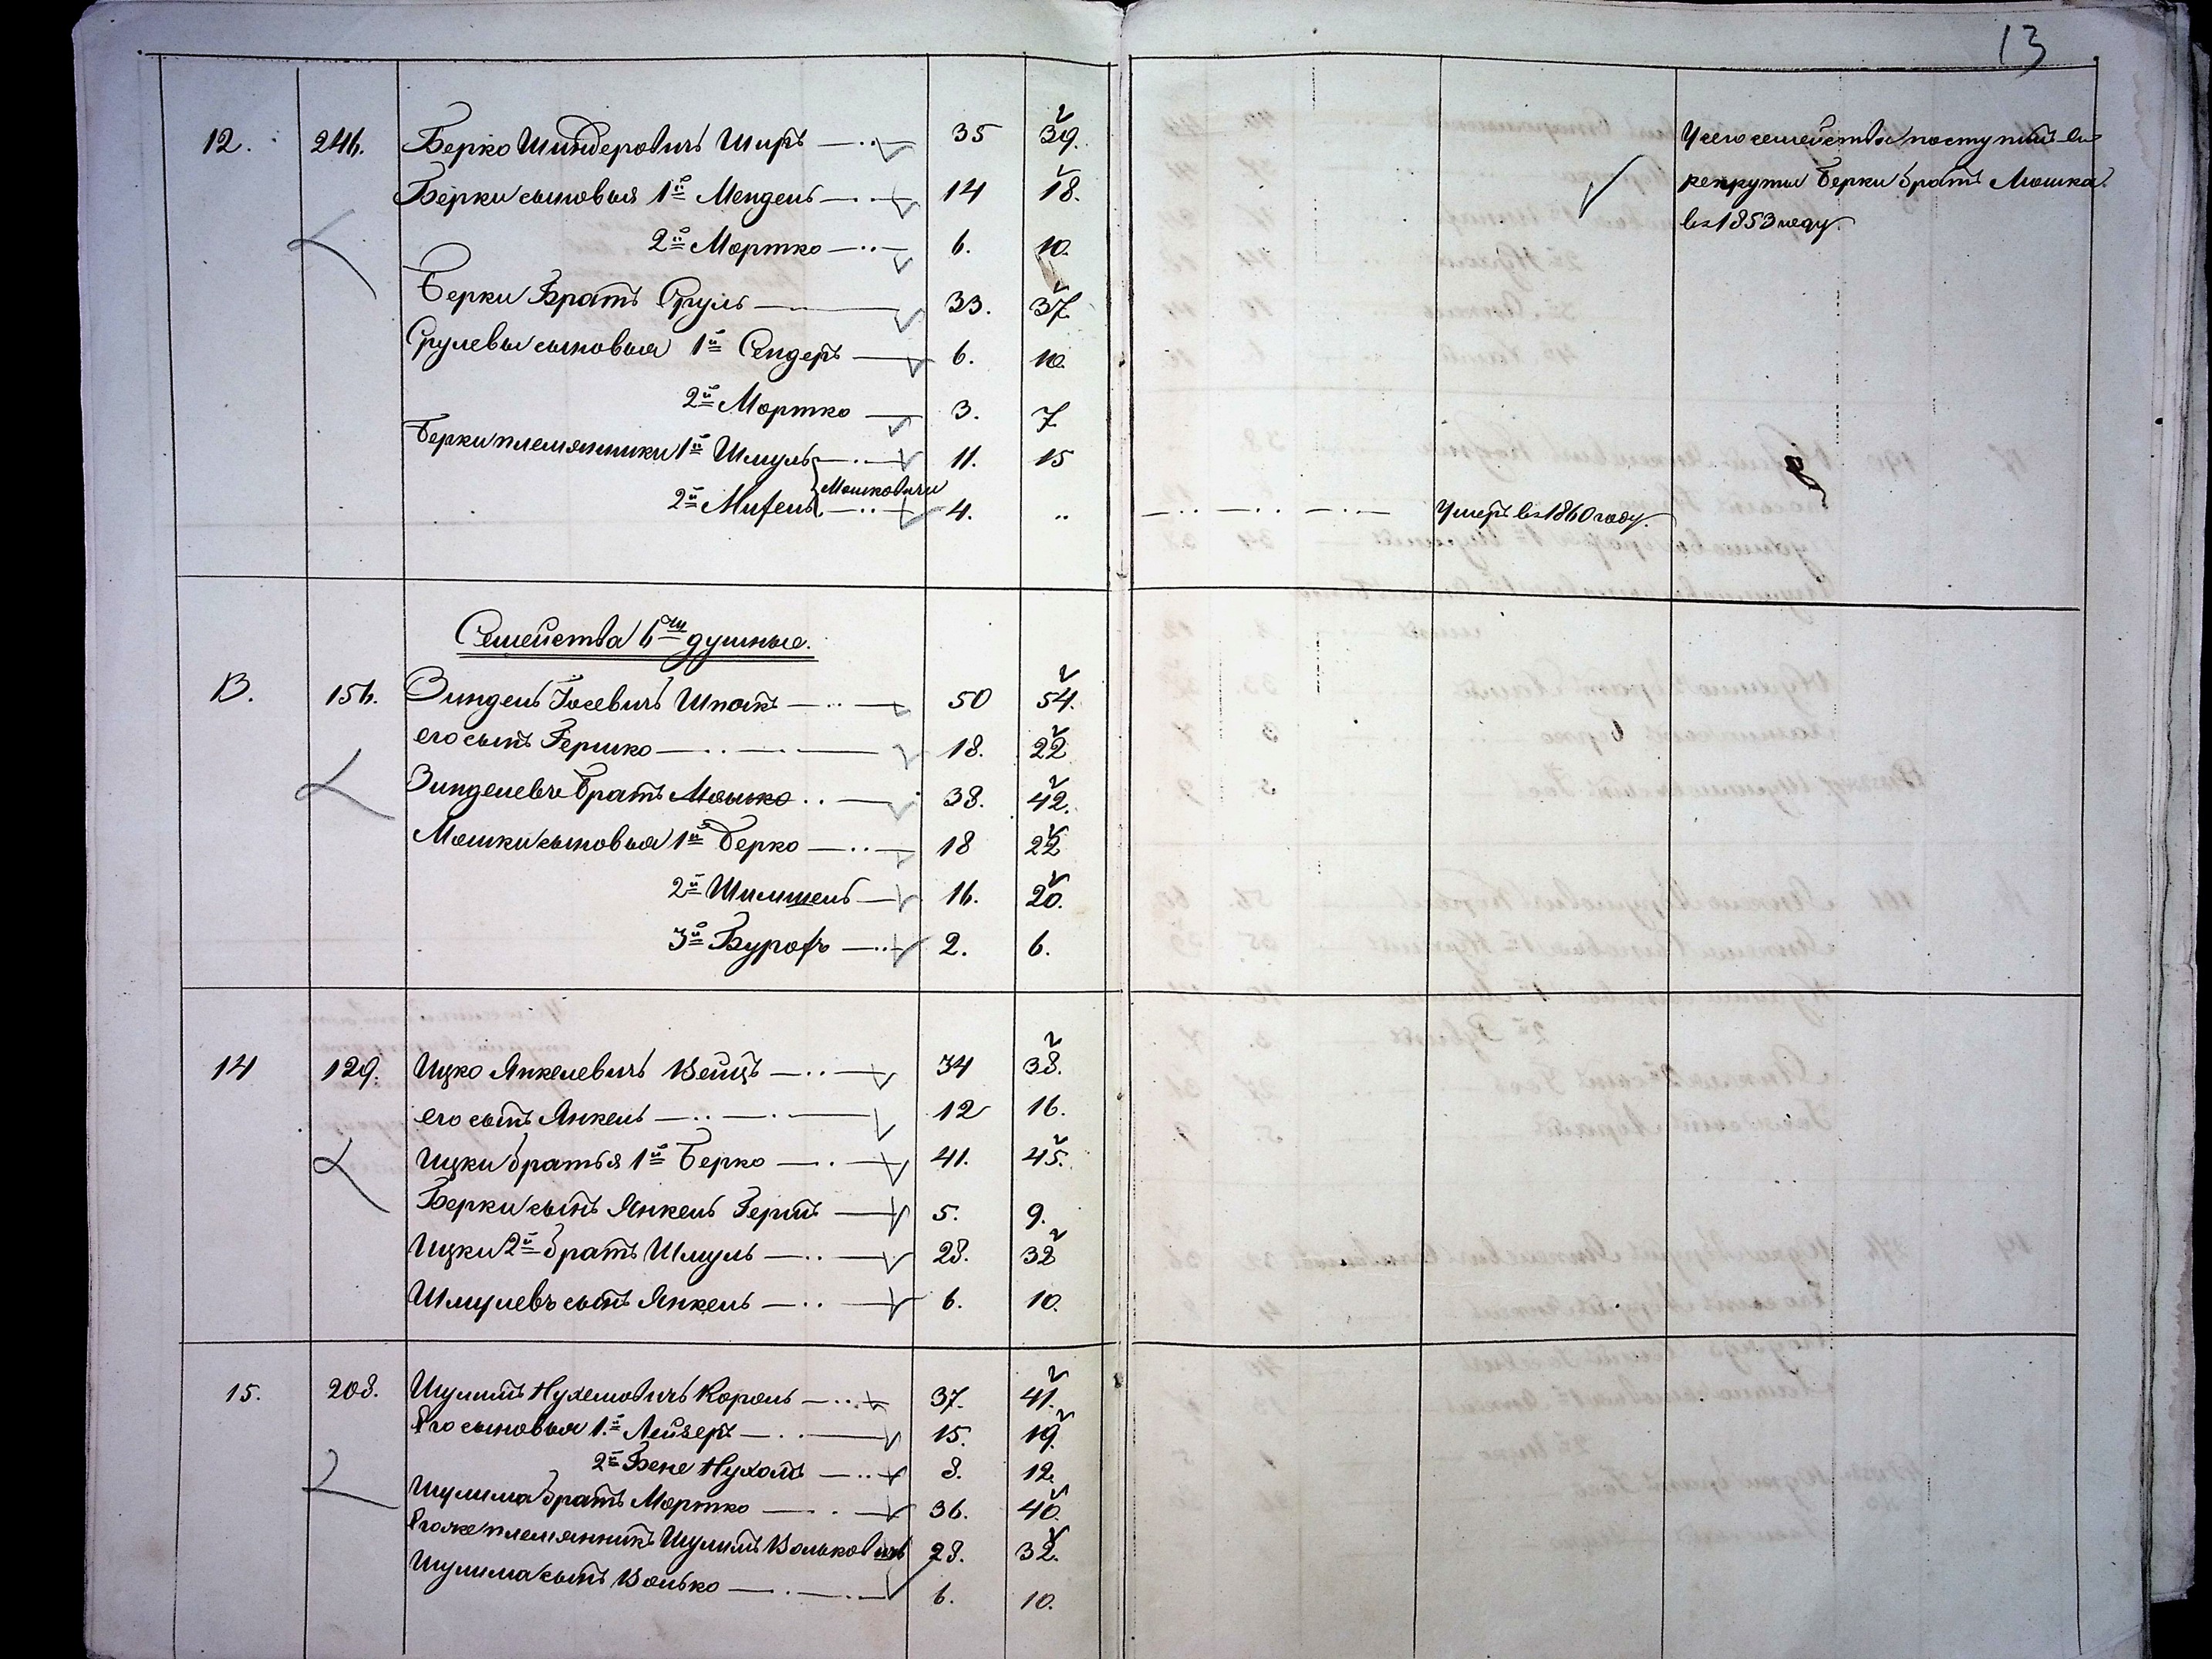 13
12. 246. Берко Шиндеровичъ Ширъ 35 39.
Берки сыновья 1й Мендель 14 18.
2й Мортко 6. 10.
Берки Братъ Сруль 33. 37
Срулевы сыновья 1й Сендеръ 6. 10.
2й Мортко 3. 7
Берки племянники 1й Шмуль 11. 15
Мошковичи
2й Михель 4. „ Умеръ въ 1860 году.
У сего семейства поступилъ въ
рекруты Берки братъ Мошка
въ 1853 году.
Семейства 6ти душные.
13. 156. Зиндель Іосевичъ Шпакъ 50 54.
его сынъ Гершко 18. 22
Зинделевъ Братъ Мошко 38. 42.
Мошки сыновья 1й Берко 18 22
2й Шимшель 16. 20.
3й Бурохъ 2. 6.
14 129. Ицко Янкелевичъ Вейцъ 34 38.
его сынъ Янкель 12 16.
Ицки братья 1й Берко 41. 45.
Берки сынъ Янкель Гершъ 5. 9.
Ицки 2й братъ Шмуль 28. 32
Шмулевъ сынъ Янкель 6. 10.
15. 208. Шулимъ Нухемовичъ Король 37. 41.
Его сыновья 1й Лейзеръ 15. 19.
2й Бене Нухомъ 8. 12.
Шулима братъ Мортко 36. 40.
Его же племянникъ Шулимъ Вольковичъ 28. 32.
Шулима сынъ Волько 6. 10.